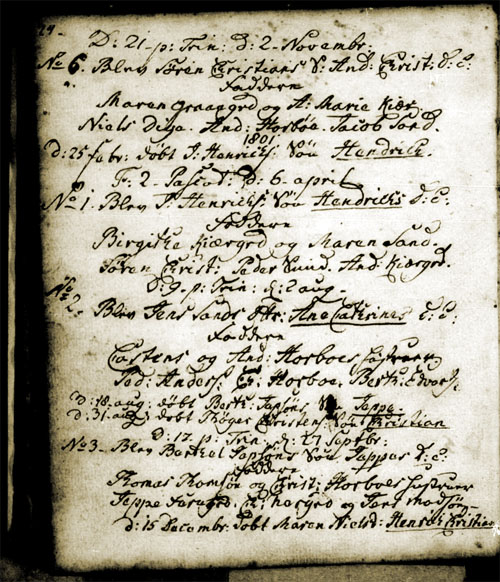 D: 21 p: Trin: D: 2 Novembr:
No 6. Blev Søren Christians S: And: Christ: d: E:
Faddere
Maren graagrd og A: Marie Kiær
Niels Diga. And: Horboe. Jacob Sand.
1801
D: 25 febr: døbt J: Henrichs: Søn Hendrich.
Fr: 2 Pascat: D: 6 april
No 1. Blev J: Henrichs: Søn Hendrichs d: E:
Faddere
Birgithe Kiærgrd og Maren Sand.
Søren Christ: Peder Svind. And: Kiærgrd.
D: 9 p: Trin: d: 2 aug.
No 2. Blev Jens Sands Ane Cathrines d: E:
Faddere
Castens og And: Horboes
Ped: Anders: Horboe. Berth:
D: 18 aug: døbt Berth: Søn Jeppe.
D: 31 aug: døbt Thøger Christens: Søn Christian
D: 17 p: Trin: d: 27 Septbr:
No 3. Blev Barthel Søn Jeppes d: E:
Faddere
Thomas Thomsøn og Christ: Horboes
Jeppe og Jens Madsøn
d: 15 Decembr. døbt Maren Nielsd: Christian